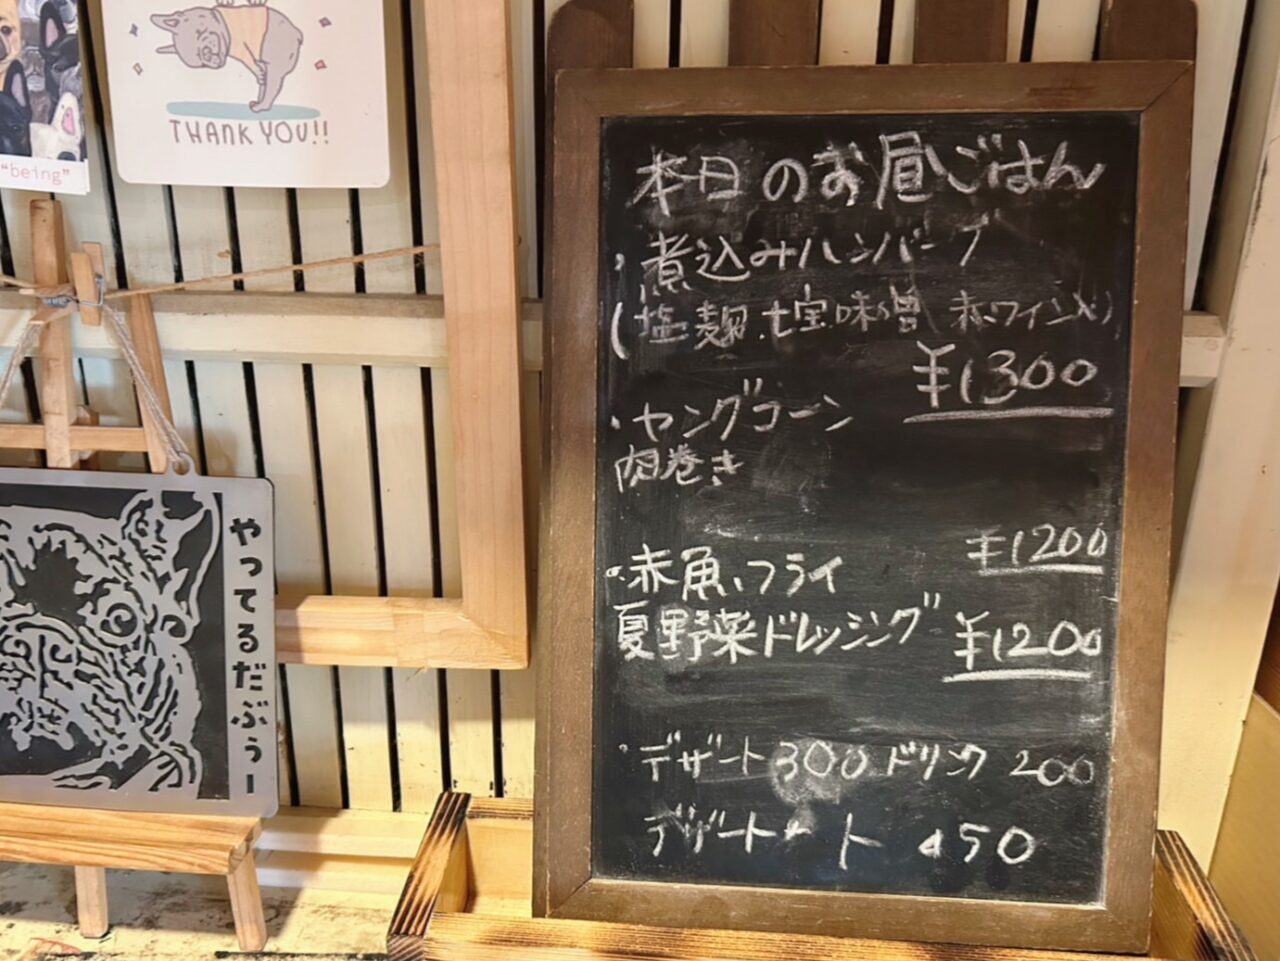 "being"
THANK YOU!!
やってるだぶぅー
本日のお昼ごはん
・煮込みハンバーグ
(塩麹、七宝味噌 赤ワイン入)
¥1300
・ヤングコーン
肉巻き
¥1200
・赤魚、フライ
夏野菜ドレッシング ¥1200
・デザート300 ドリンク 200
デザート ト 450